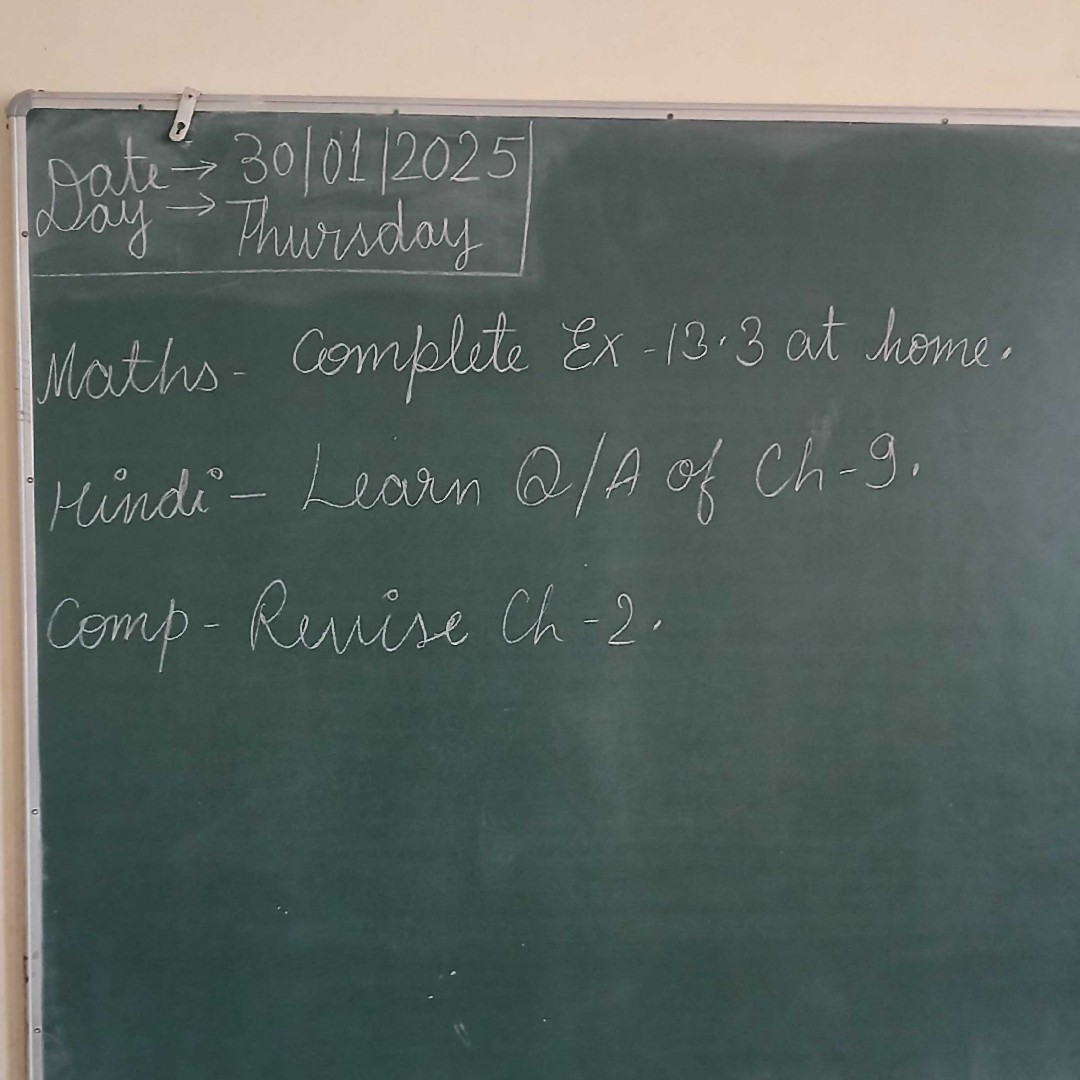 Date → 30/01/2025
Day → Thursday
Maths - Complete Ex - 13.3 at home.
Hindi - Learn Q/A of Ch - 9.
Comp - Revise Ch - 2.